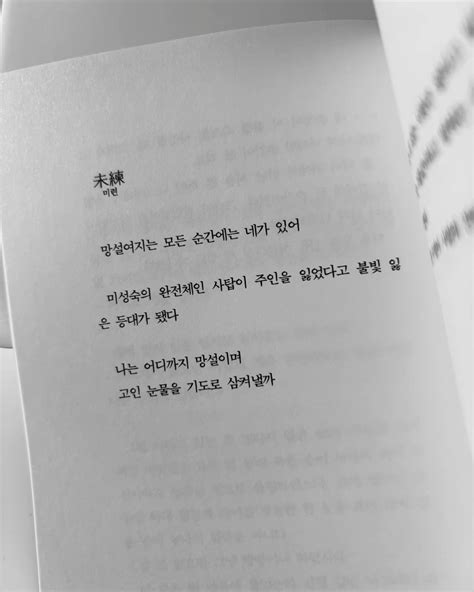 未練
미련
망설여지는 모든 순간에는 네가 있어
미성숙의 완전체인 사탑이 주인을 잃었다고 불빛 잃
은 등대가 됐다
나는 어디까지 망설이며
고인 눈물을 기도로 삼켜낼까